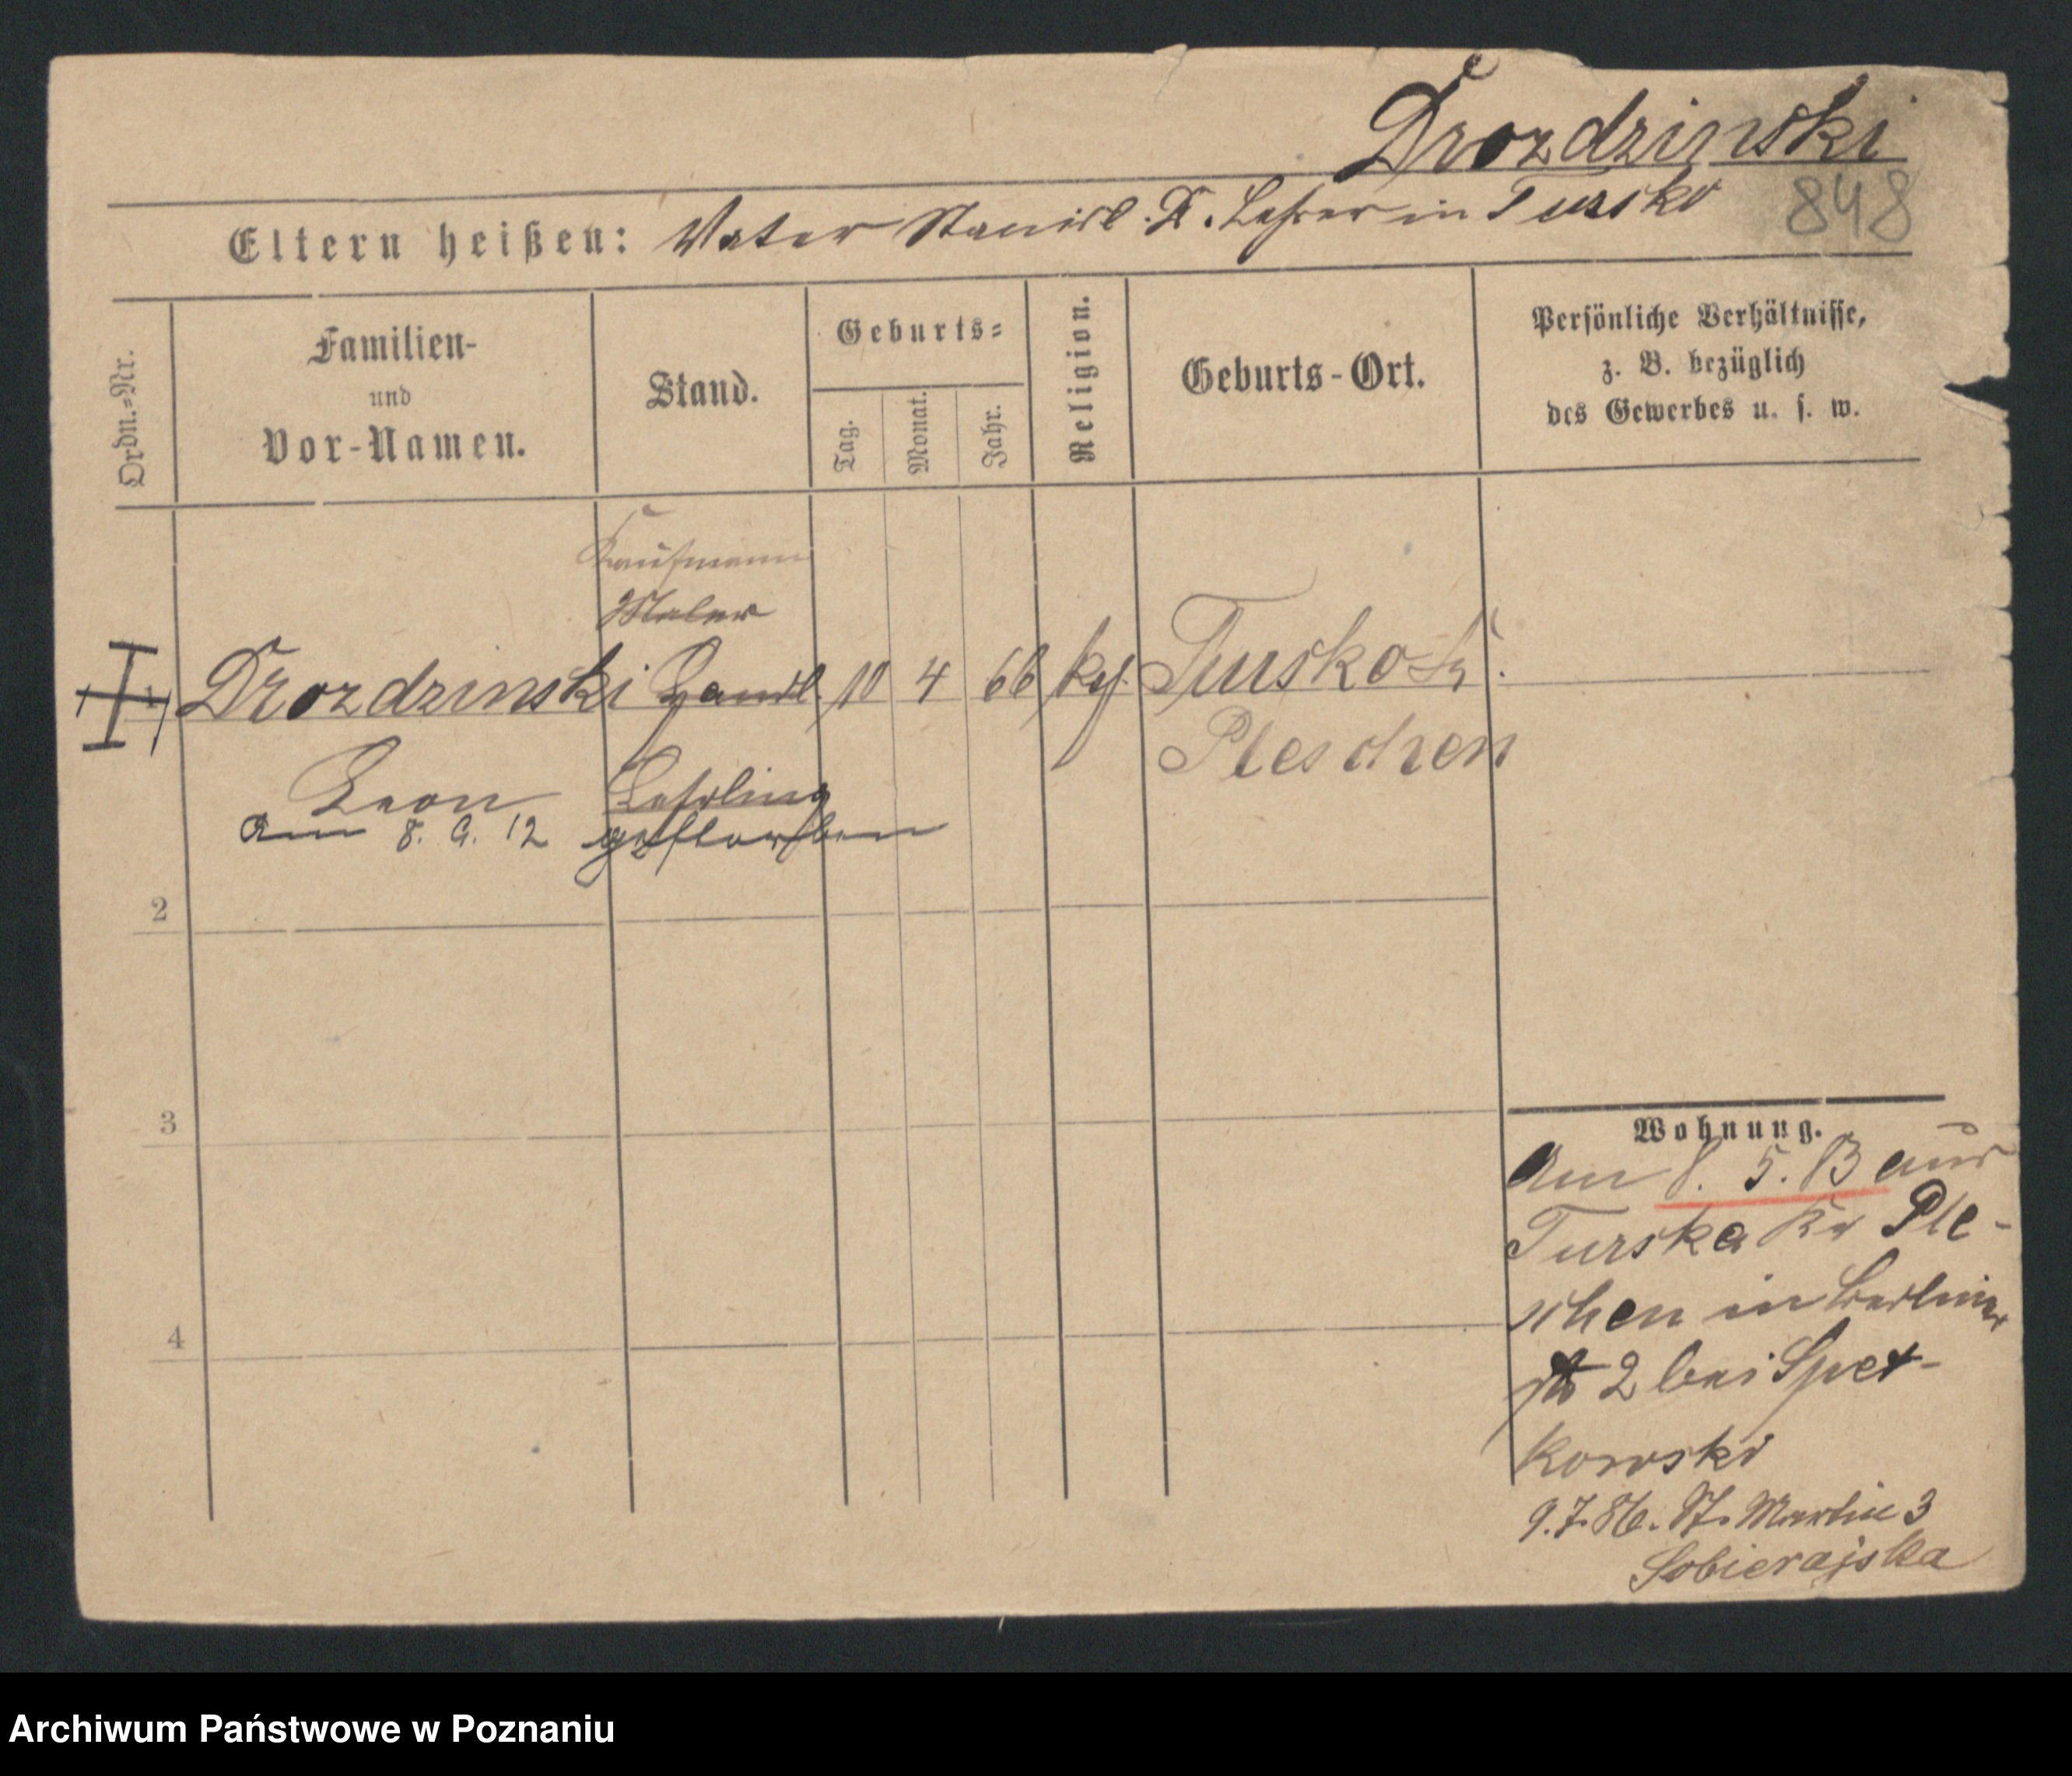 Drozdzinski
848
Eltern heißen: Vater Stanisl. D. Lehrer in Tursko
Ordn.-Nr.
Familien-
und
Vor-Namen.
Stand.
Geburts-
Tag.
Monat.
Jahr.
Religion.
Geburts-Ort.
Persönliche Verhältnisse,
z. B. bezüglich
des Gewerbes u. s. w.
Kaufmann
Maler
1 Drozdzinski Handl. 10 4 66 kg. Tursko Kr.
Pleschen
Leon Lehrling
Am 8. 9. 12 gestorben
2
3
4
Wohnung.
Am 8. 5. 83 aus
Turska Kr Ple-
schen in Berliner
str 2 bei Spet-
kowski
9.7.86. St. Martin 3
Sobierajska
Archiwum Państwowe w Poznaniu